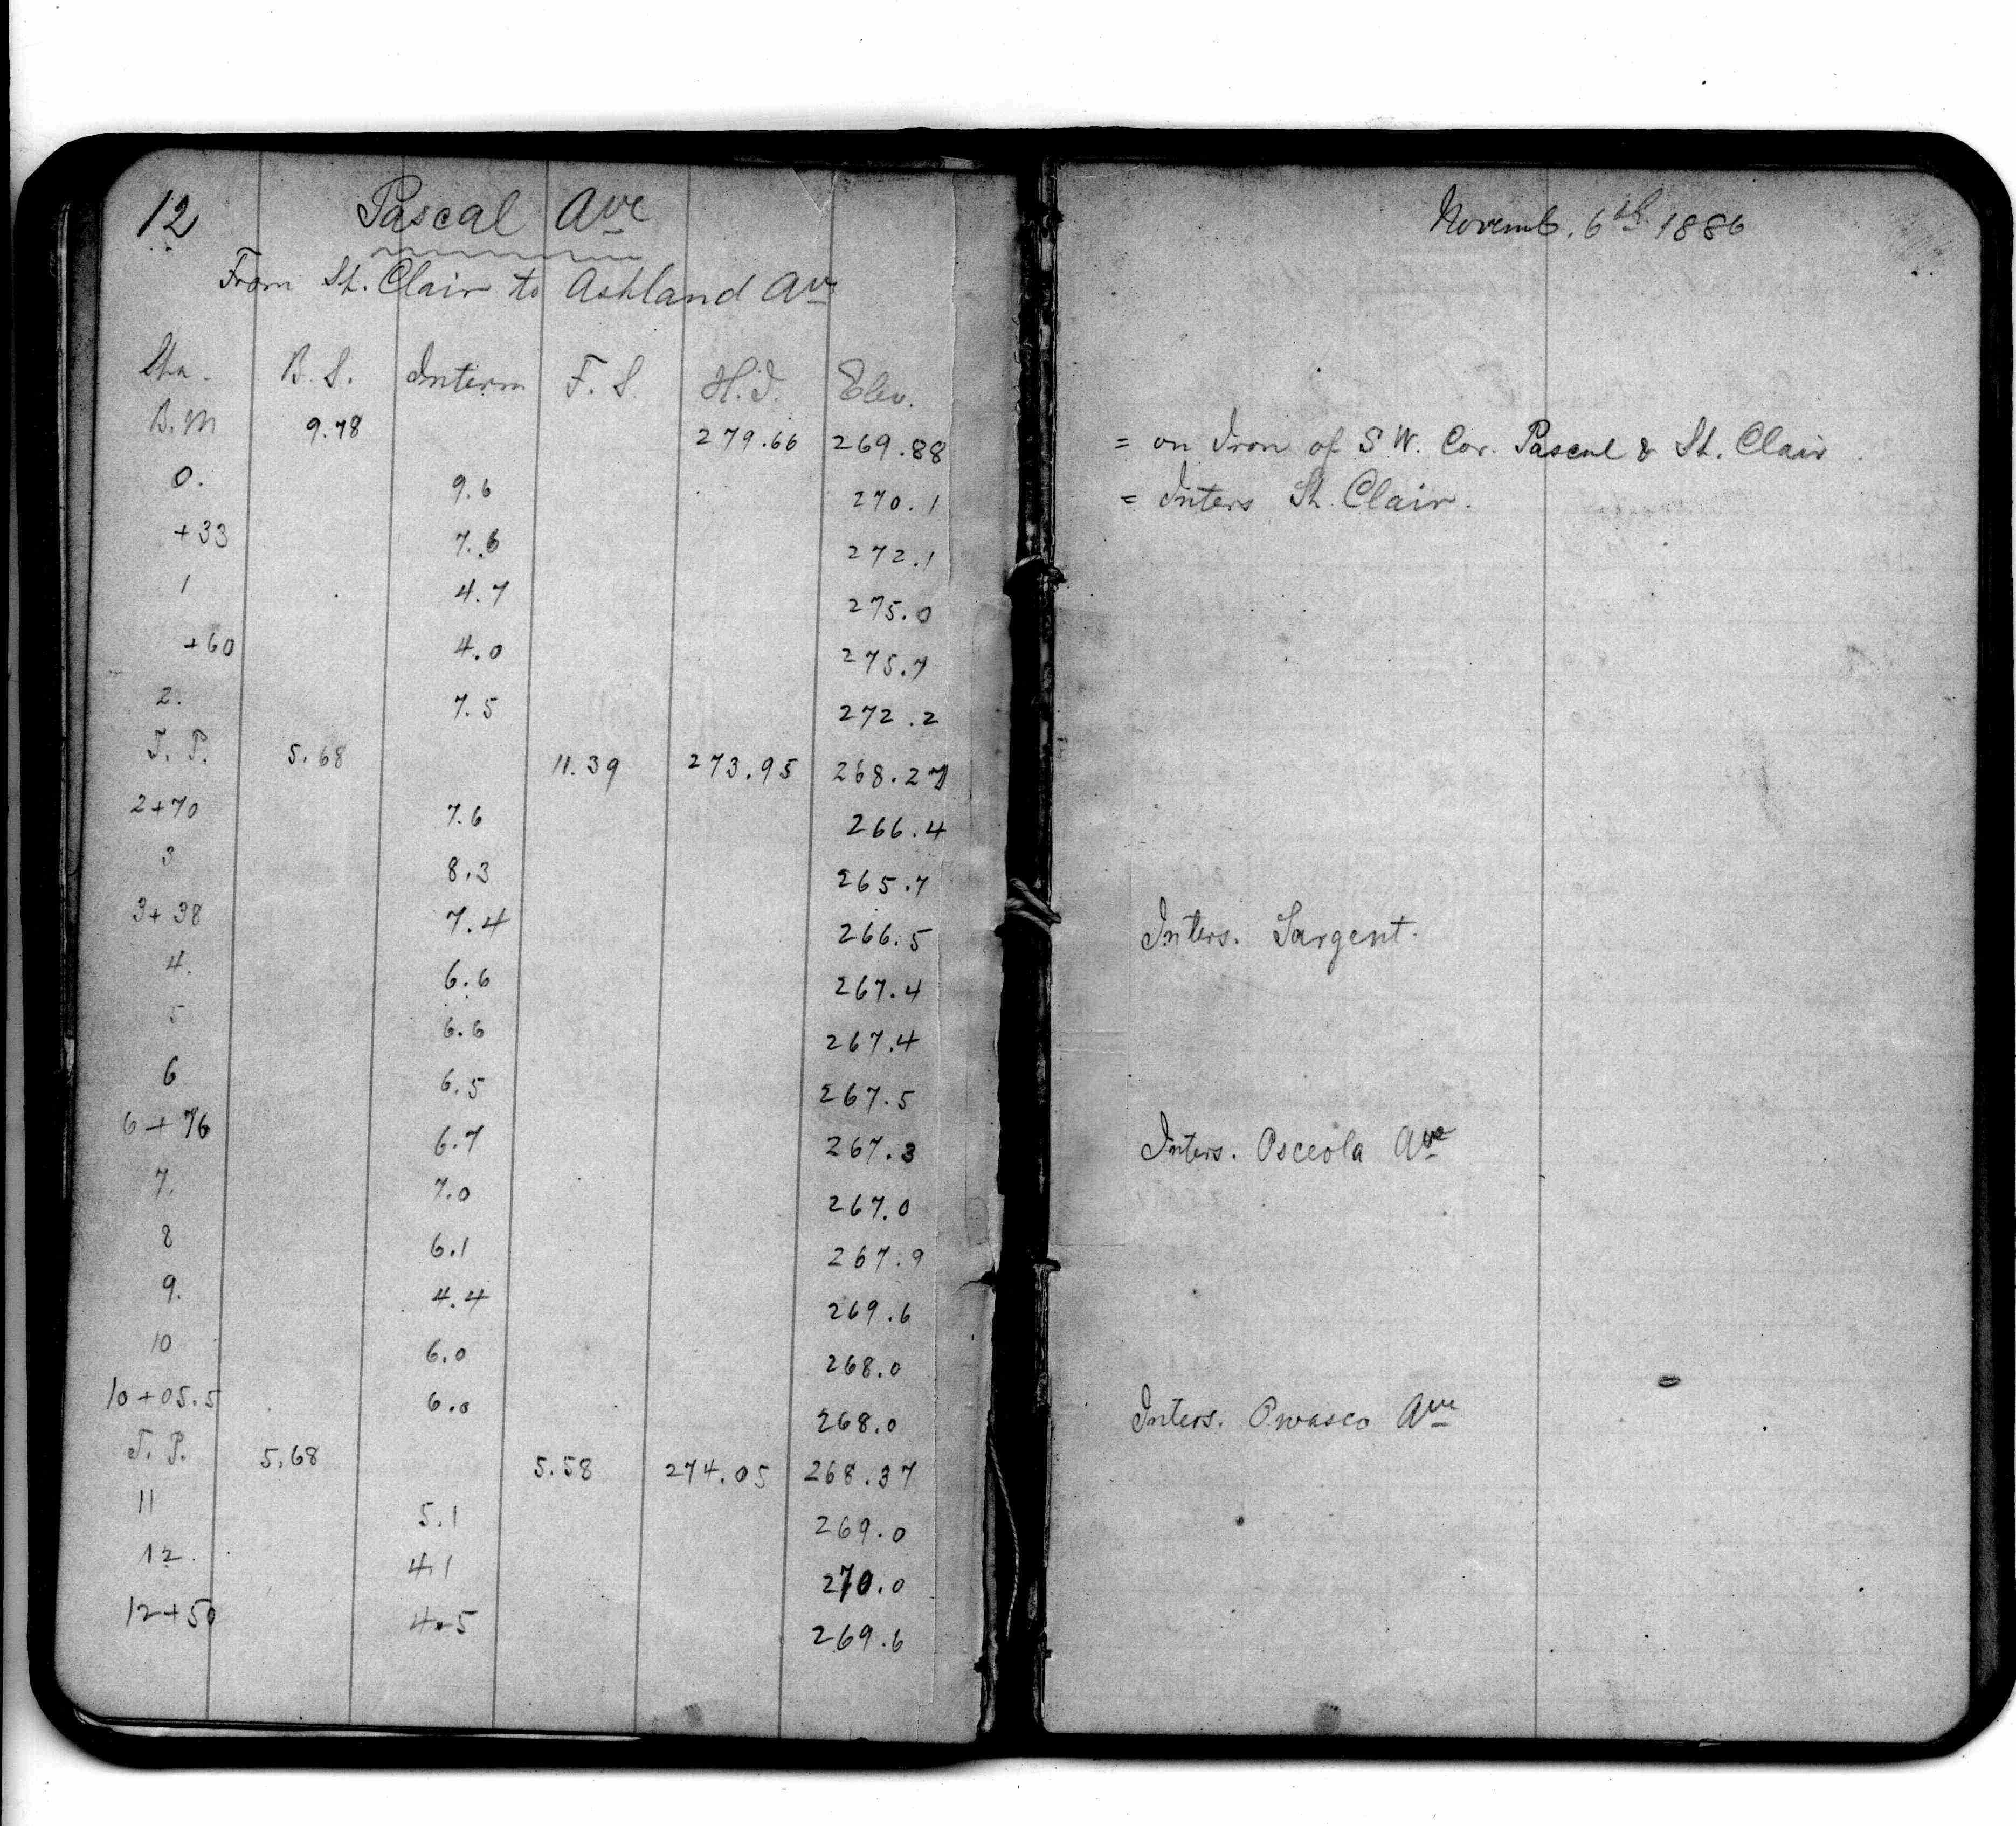 12 Pascal Ave
From St. Clair to Ashland Ave
Sta. B.S. Interm F.S. H.I. Elev.
B.M 9.78 279.66 269.88
0. 9.6 270.1
+33 7.6 272.1
1 4.7 275.0
+60 4.0 275.7
2. 7.5 272.2
T.P. 5.68 11.39 273.95 268.27
2+70 7.6 266.4
3 8.3 265.7
3+38 7.4 266.5
4. 6.6 267.4
5 6.6 267.4
6 6.5 267.5
6+76 6.7 267.3
7. 7.0 267.0
8 6.1 267.9
9. 4.4 269.6
10 6.0 268.0
10+05.5 6.0 268.0
T.P. 5.68 5.58 274.05 268.37
11 5.1 269.0
12. 4.1 270.0
12+50 4.5 269.6
Novemb. 6th 1886
= on Iron of S W. Cor. Pascal & St. Clair
= Inters St. Clair.
Inters. Sargent.
Inters. Osceola Ave
Inters. Owasco Ave